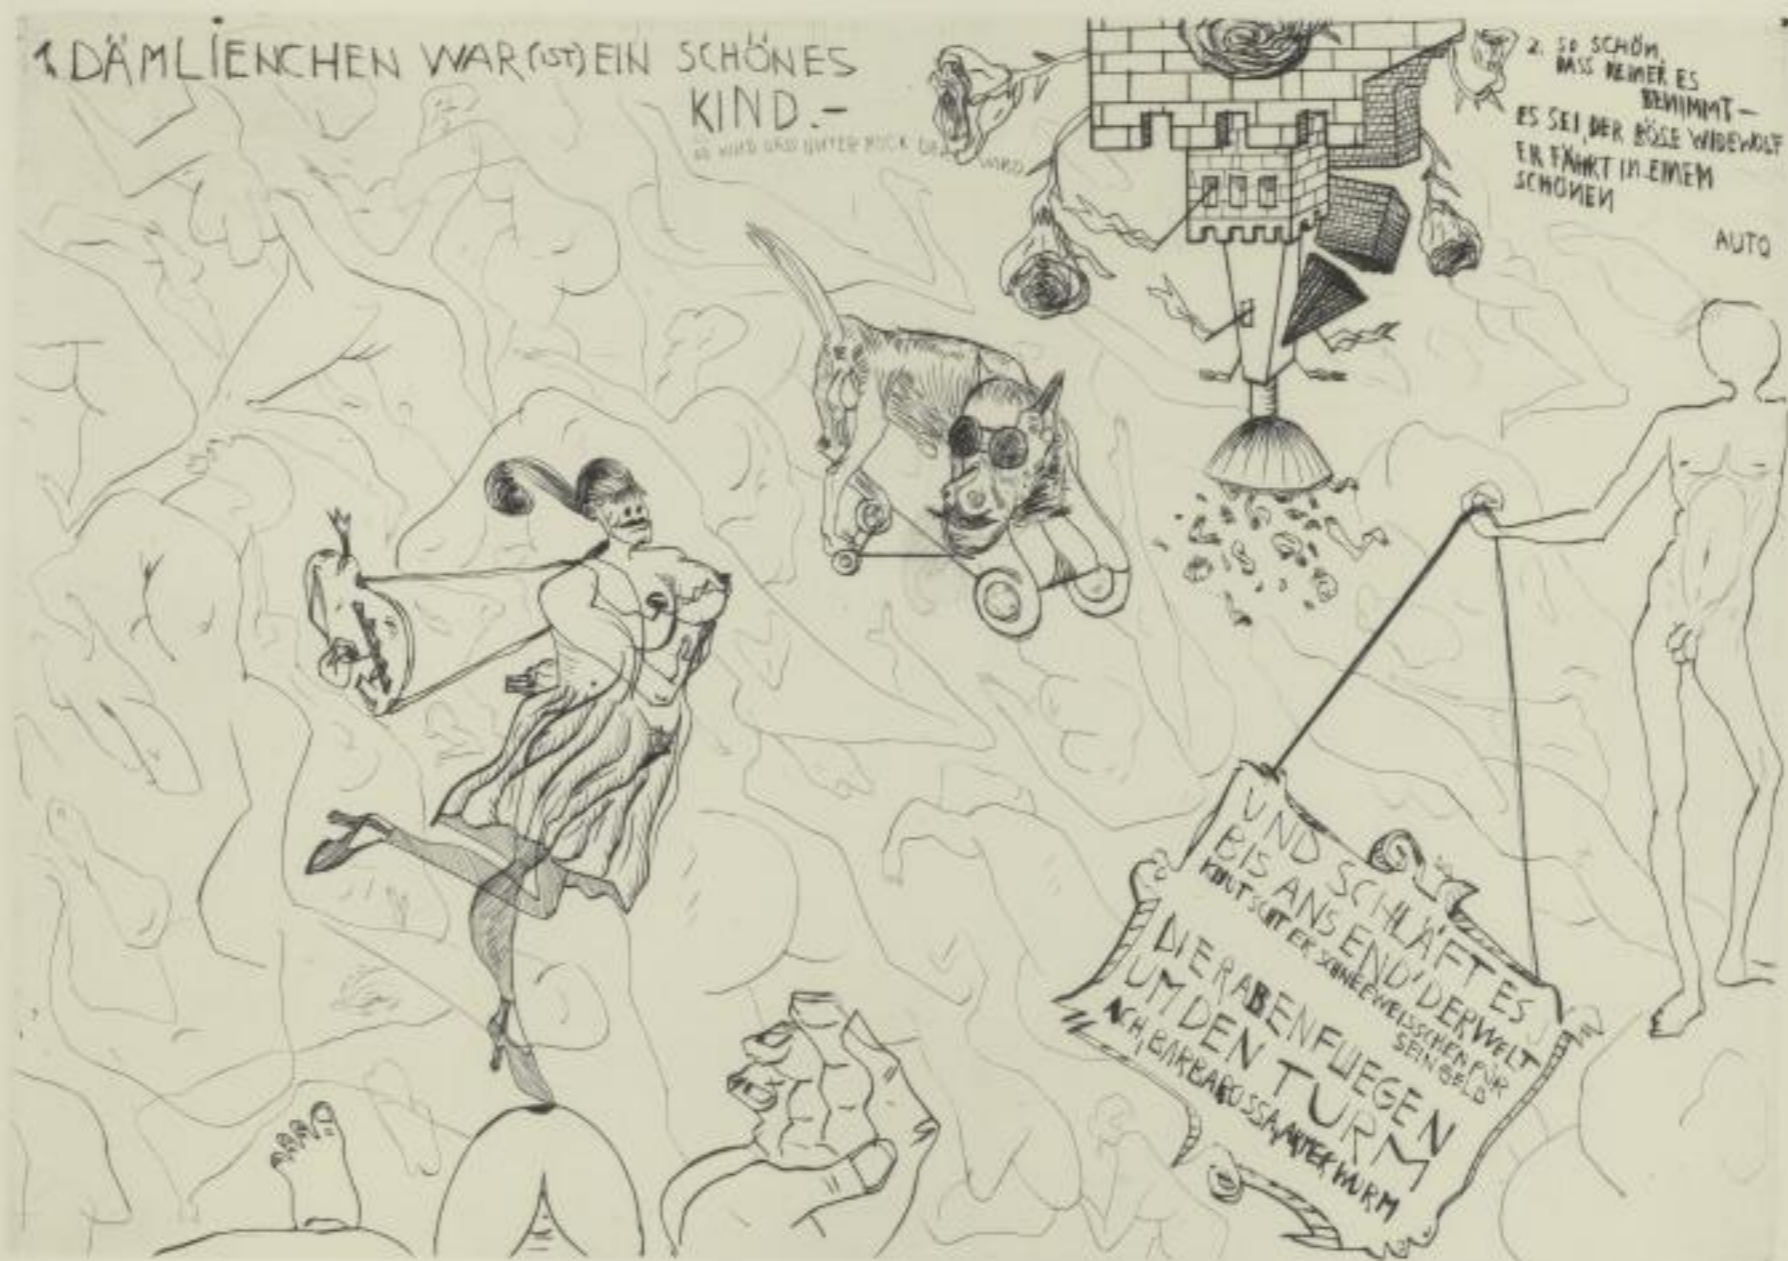 1. DÄMLIENCHEN WAR (IST) EIN SCHÖNES
KIND.-
2. SO SCHÖN,
DASS KEINER ES
BENIMMT—
ES SEI, DER BÖSE WIDEWOLF
ER FÄHRT IN EINEM
SCHÖNEN
AUTO
UND SCHLÄFT ES
BIS ANS END' DER WELT
SCHNEEWEISSCHEN FÜR
SEIN GELD
DIE RABEN FLIEGEN
UM DEN TURM
ACH, BARBAROSSA, WURM